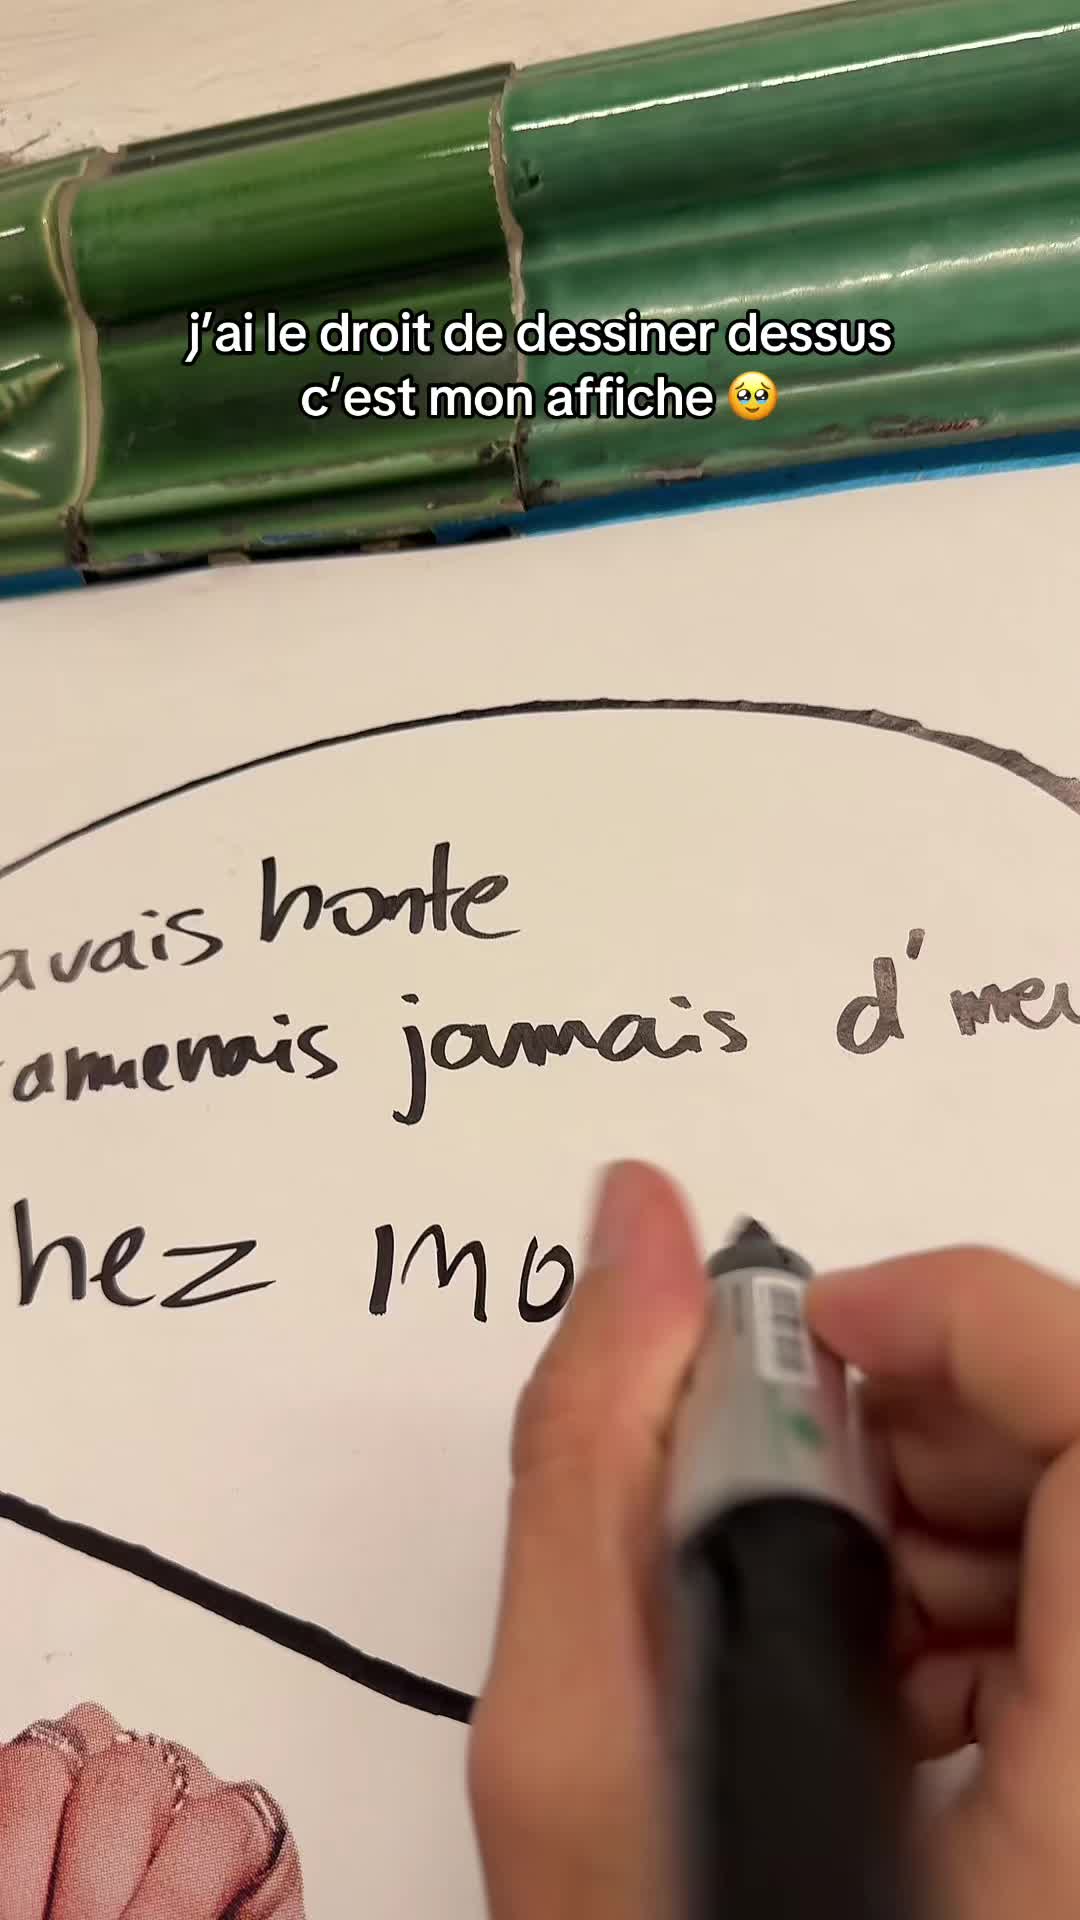 j’ai le droit de dessiner dessus
c’est mon affiche 🥹
avais honte
amenais jamais d'
hez mo